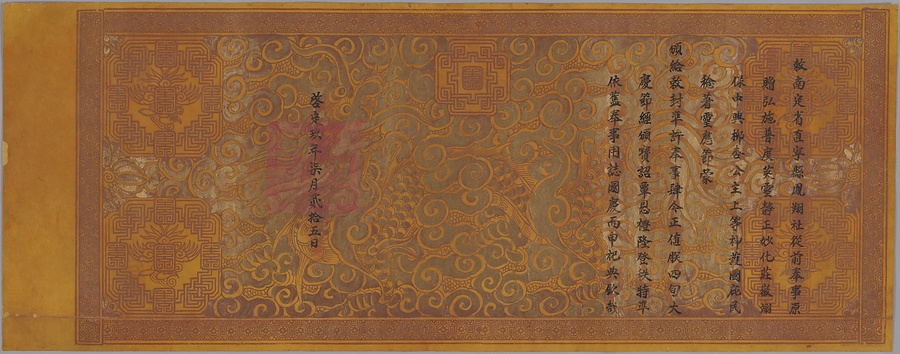 敕南定省直寧縣鳳翔社從前奉事原
贈弘施普度英靈静正妙化莊嚴翊
保中興柳杏公主上等神護國庇民
稔著靈應節蒙
頒給敕封準許奉事肆今正值朕四旬大
慶節經頒寶詔覃恩禮隆登秩特準
依舊奉事用誌國慶而申祀典欽哉
啓定玖年柒月貳拾五日